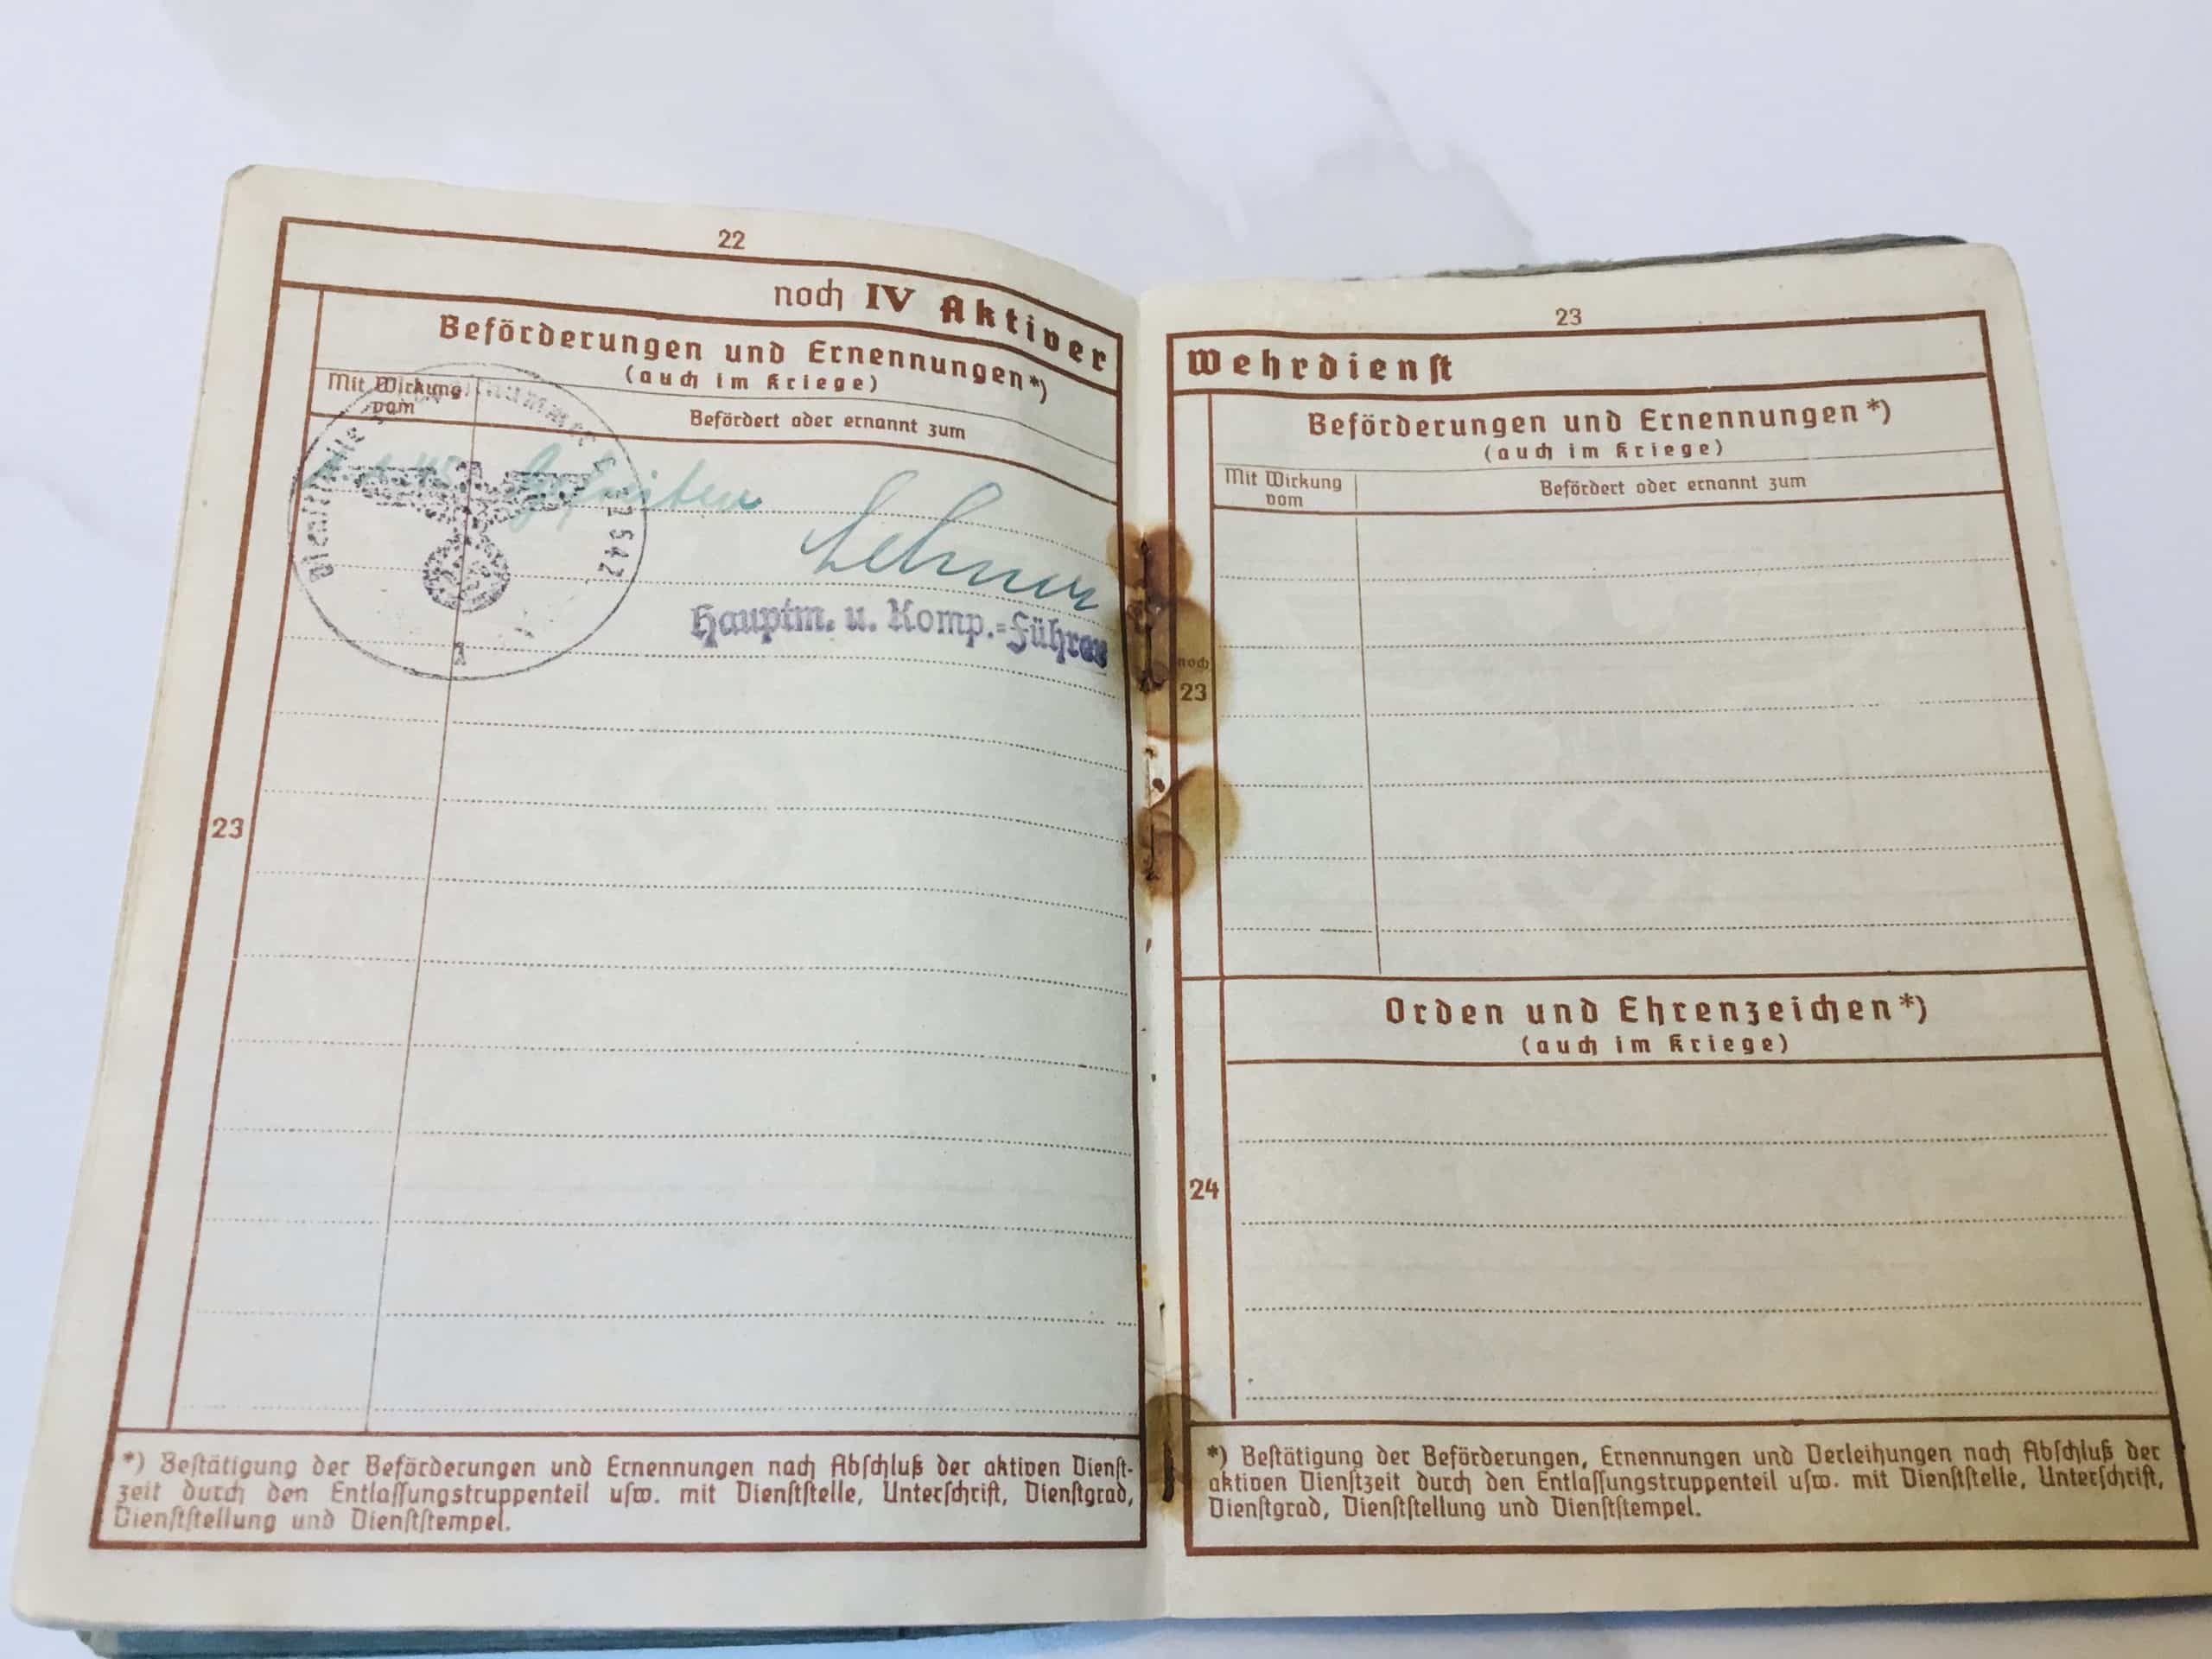 22
noch IV Aktiver
Beförderungen und Ernennungen*)
(auch im Kriege)
Mit Wirkung
vom
Befördert oder ernannt zum
Gefreiten
Hauptm. u. Komp.-Führer
23
*) Bestätigung der Beförderungen und Ernennungen nach Abschluß der aktiven Dienst-
zeit durch den Entlassungstruppenteil usw. mit Dienststelle, Unterschrift, Dienstgrad,
Dienststellung und Dienststempel.
23
Wehrdienst
Beförderungen und Ernennungen*)
(auch im Kriege)
Mit Wirkung
vom
Befördert oder ernannt zum
noch
23
Orden und Ehrenzeichen*)
(auch im Kriege)
24
*) Bestätigung der Beförderungen, Ernennungen und Verleihungen nach Abschluß der
aktiven Dienstzeit durch den Entlassungstruppenteil usw. mit Dienststelle, Unterschrift,
Dienstgrad, Dienststellung und Dienststempel.